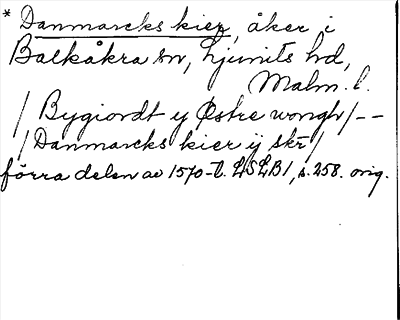 * Danmarcks kier, åker i
Balkåkra sn, Ljunits hd,
Malm. l.
/ Bygiordt y Østre wongh / --
/ Danmarcks kier ÿ skr /
förra delen av 1570-t. LSLB1, s. 258. orig.